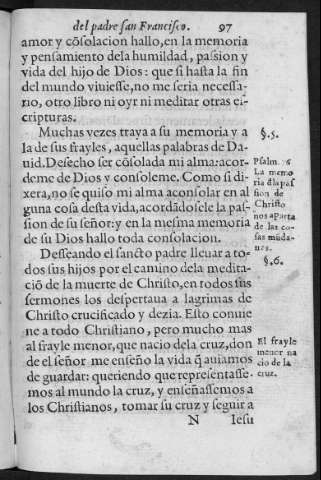 del padre san Francisco. 97
amor y cõsolacion hallo, en la memoria
y pensamiento dela humildad, passion y
vida del hijo de Dios: que si hasta la fin
del mundo viuiesse, no me seria necessa-
rio, otro libro ni oyr ni meditar otras es-
cripturas.
Muchas vezes traya a su memoria y a
la de sus frayles, aquellas palabras de Da-
uid. Desecho ser cõsolada mi alma: acor-
deme de Dios y consoleme. Como si di-
xera, no se quiso mi alma aconsolar en al
guna cosa desta vida, acordãdose de la pas-
sion de su señor: y en la mesma memoria
de su Dios hallo toda consolacion.
Desseando el sancto padre lleuar a to-
dos sus hijos por el camino dela meditia-
ciõ de la muerte de Christo, en todos sus
sermones los despertaua a lagrimas de
Christo crucificado y dezia. Esto conuie
ne a todo Christiano, pero mucho mas
al frayle menor, que nacio dela cruz, don
de el señor me enseño la vida q̃ auiamos
de guardar: queriendo que representasse-
mos al mundo la cruz, y enseñassemos a
los Christianos, tomar su cruz y seguir a
N Iesu
§.5.
Psalm. 76
La memo
ria d̃la pas
sion de
Christo
nos aparta
de las co-
sas mũda-
nas.
§.6.
El frayle
menor na
cio de la
cruz.